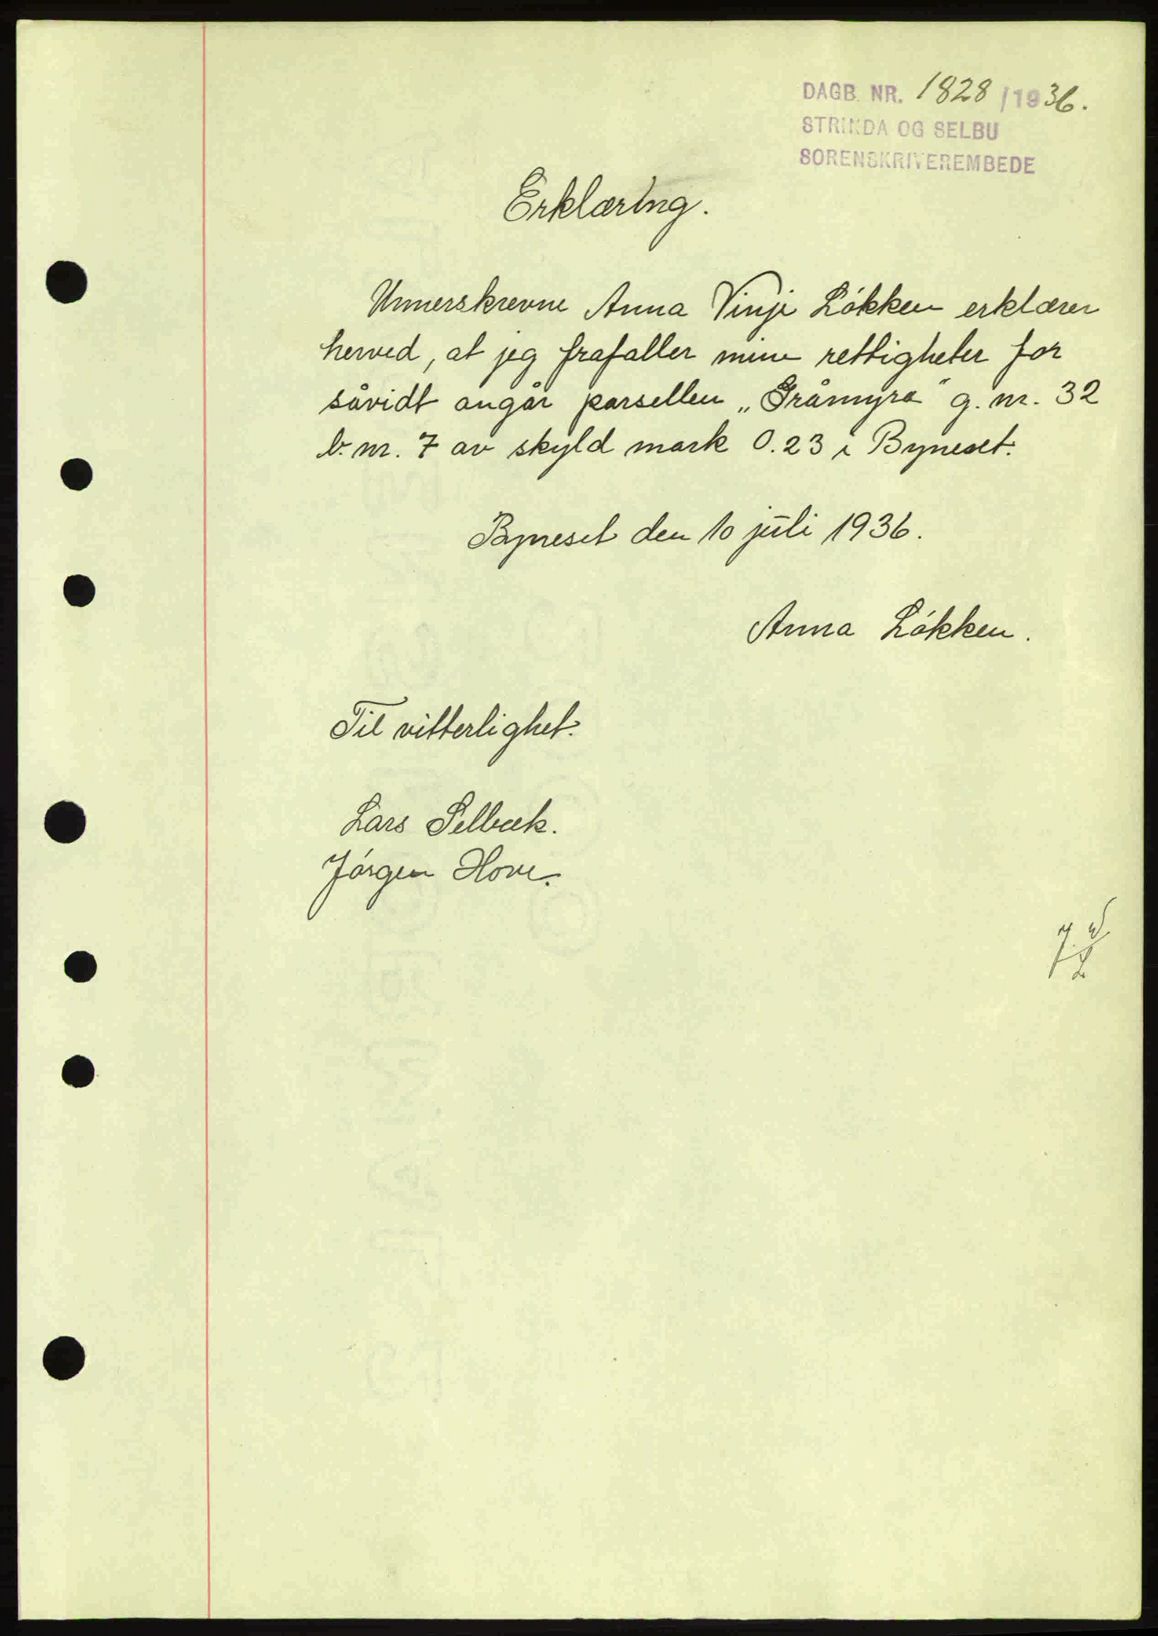 DAGB. NR. 1828 /1936.
STRINDA OG SELBU
SORENSKRIVEREMBEDE
Erklæring.
Unnerskrevne Anna Vinje Løkken erklærer
herved, at jeg frafaller mine rettigheter for
såvidt angår parsellen „Gråmyra“ g. nr. 32
b. nr. 7 av skyld mark 0.23 i Byneset.
Byneset den 10 juli 1936.
Anna Løkken.
Til vitterlighet:
Lars Selbæk.
Jørgen Hove.